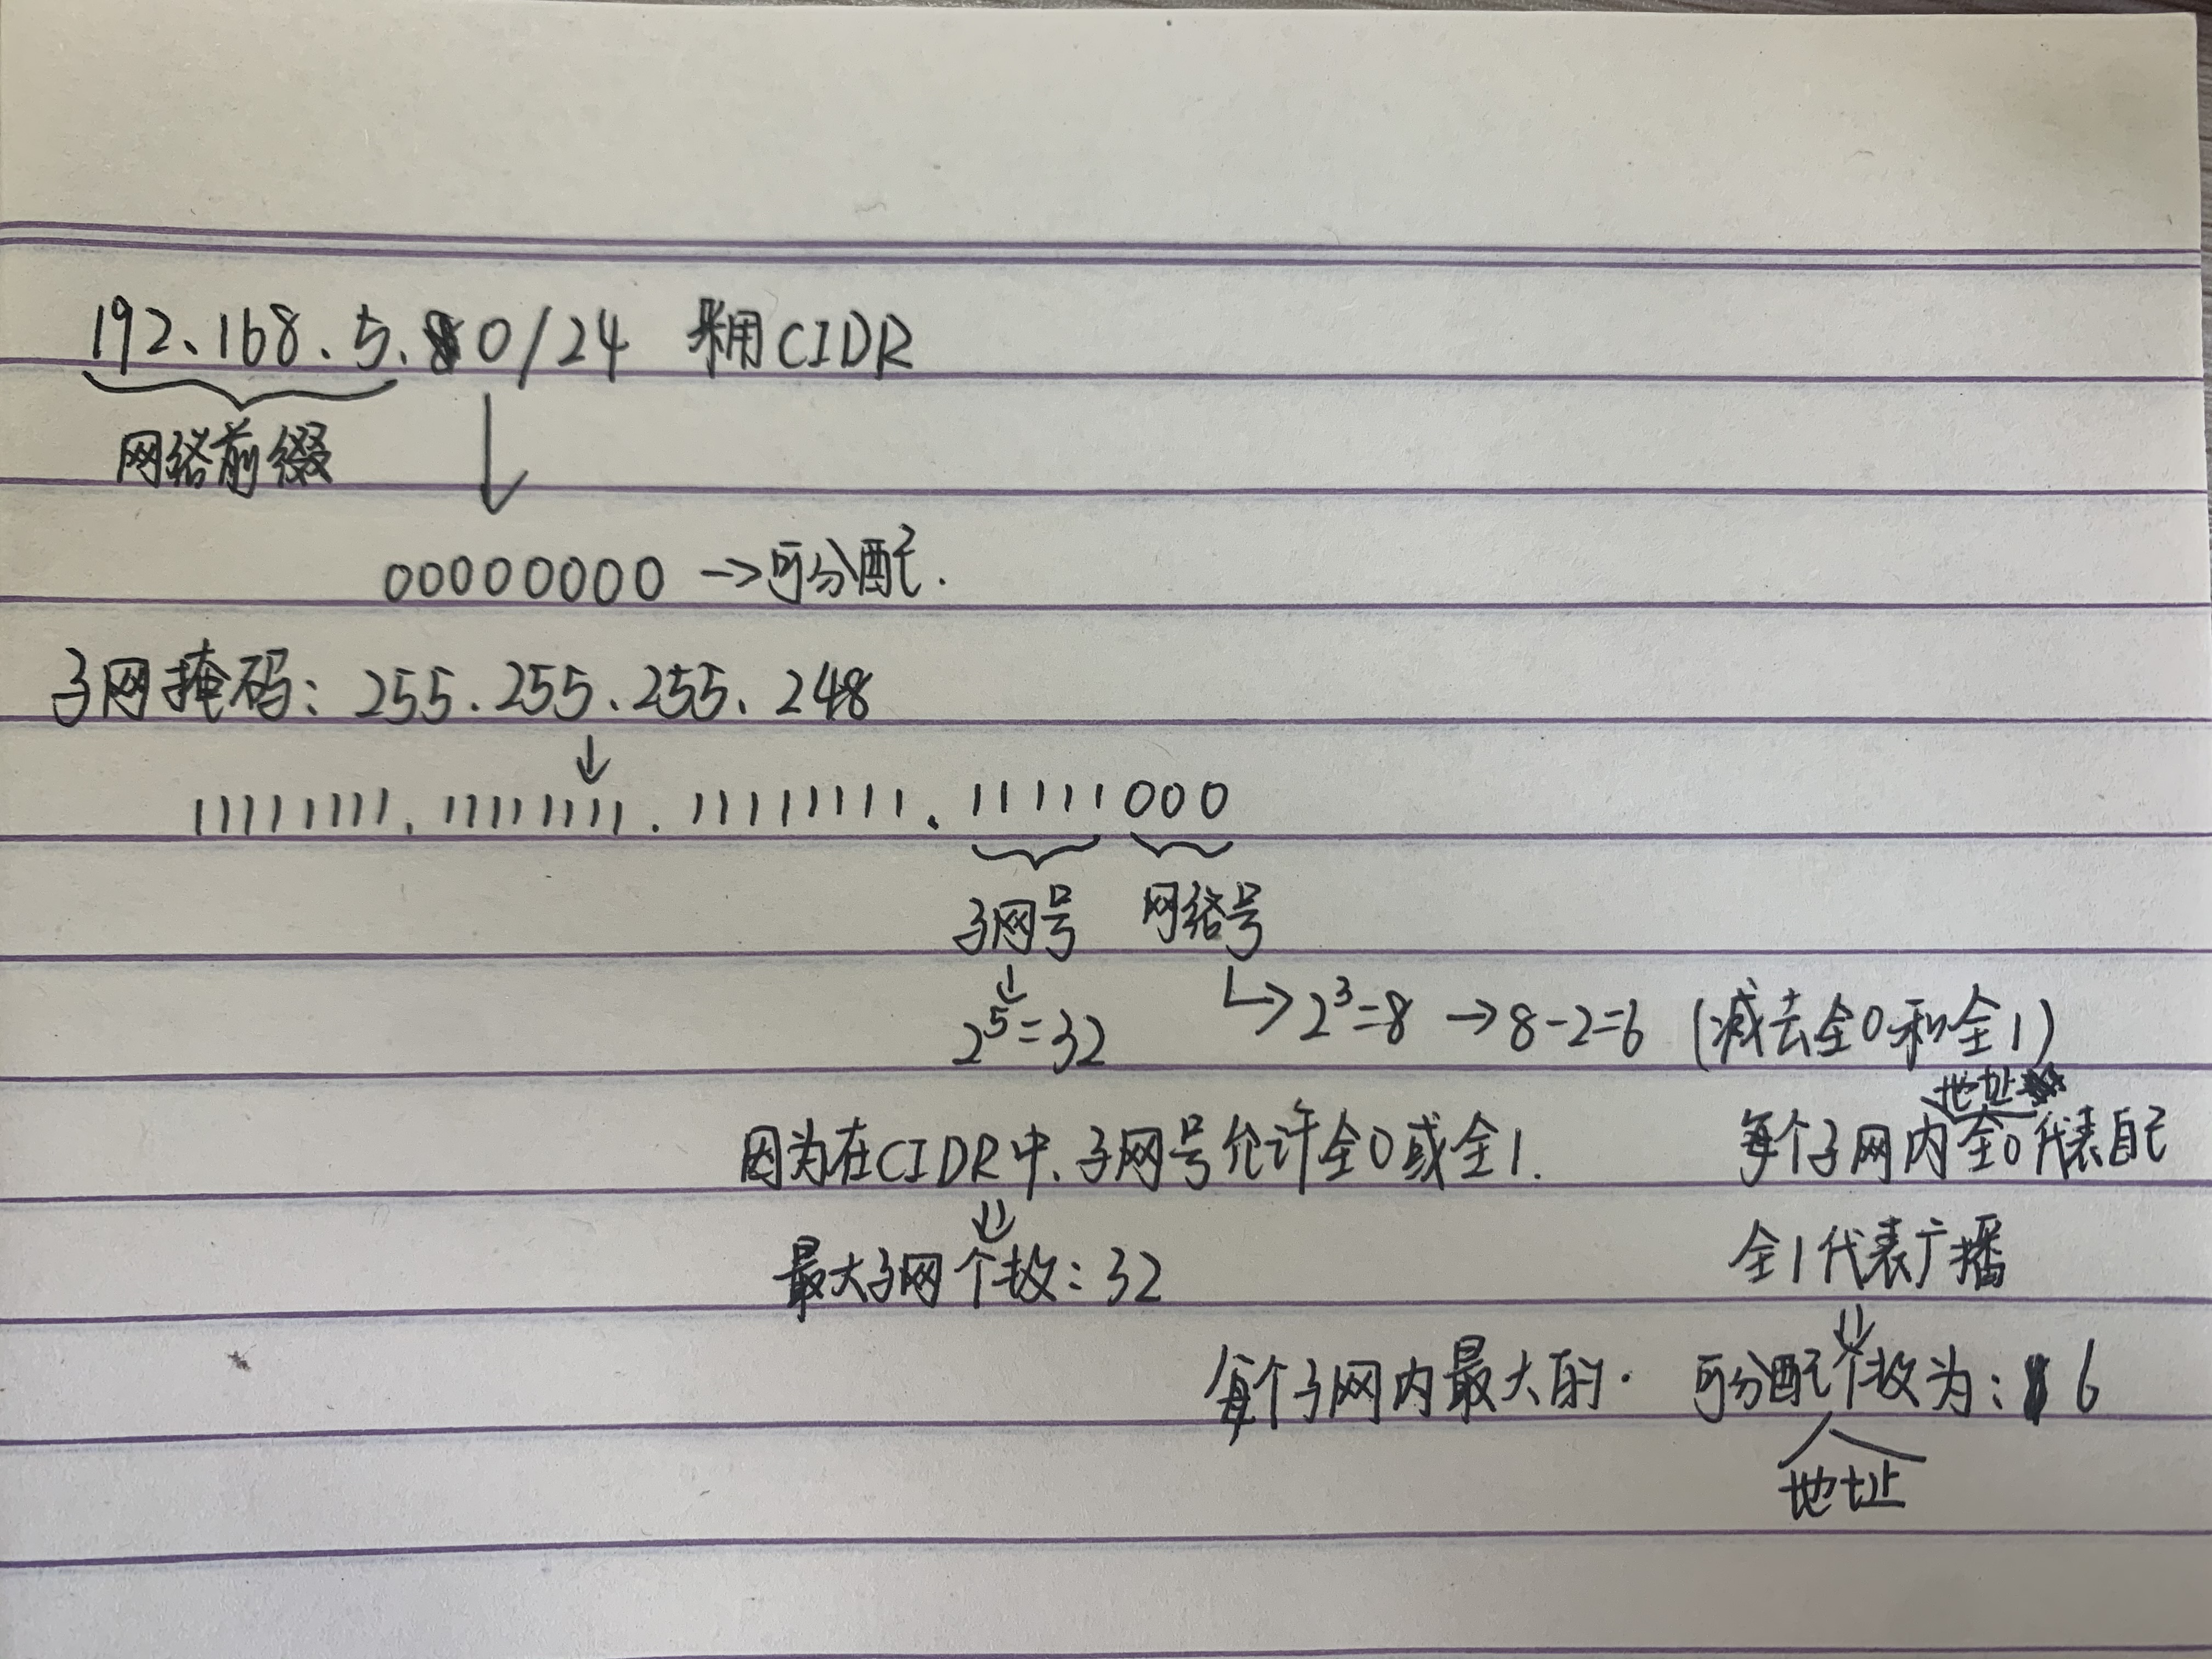 192.168.5.0/24 采用CIDR
网络前缀
00000000 →可分配.
子网掩码: 255.255.255.248
↓
11111111.11111111.11111111.11111000
子网号 网络号
2⁵=32 ↳2³=8 →8-2=6 (减去全0和全1)
地址
因为在CIDR中、子网号允许全0或全1. 每个子网内全0代表自己
最大子网个数: 32 全1代表广播
每个子网内最大的. 可分配个数为: 6
地址